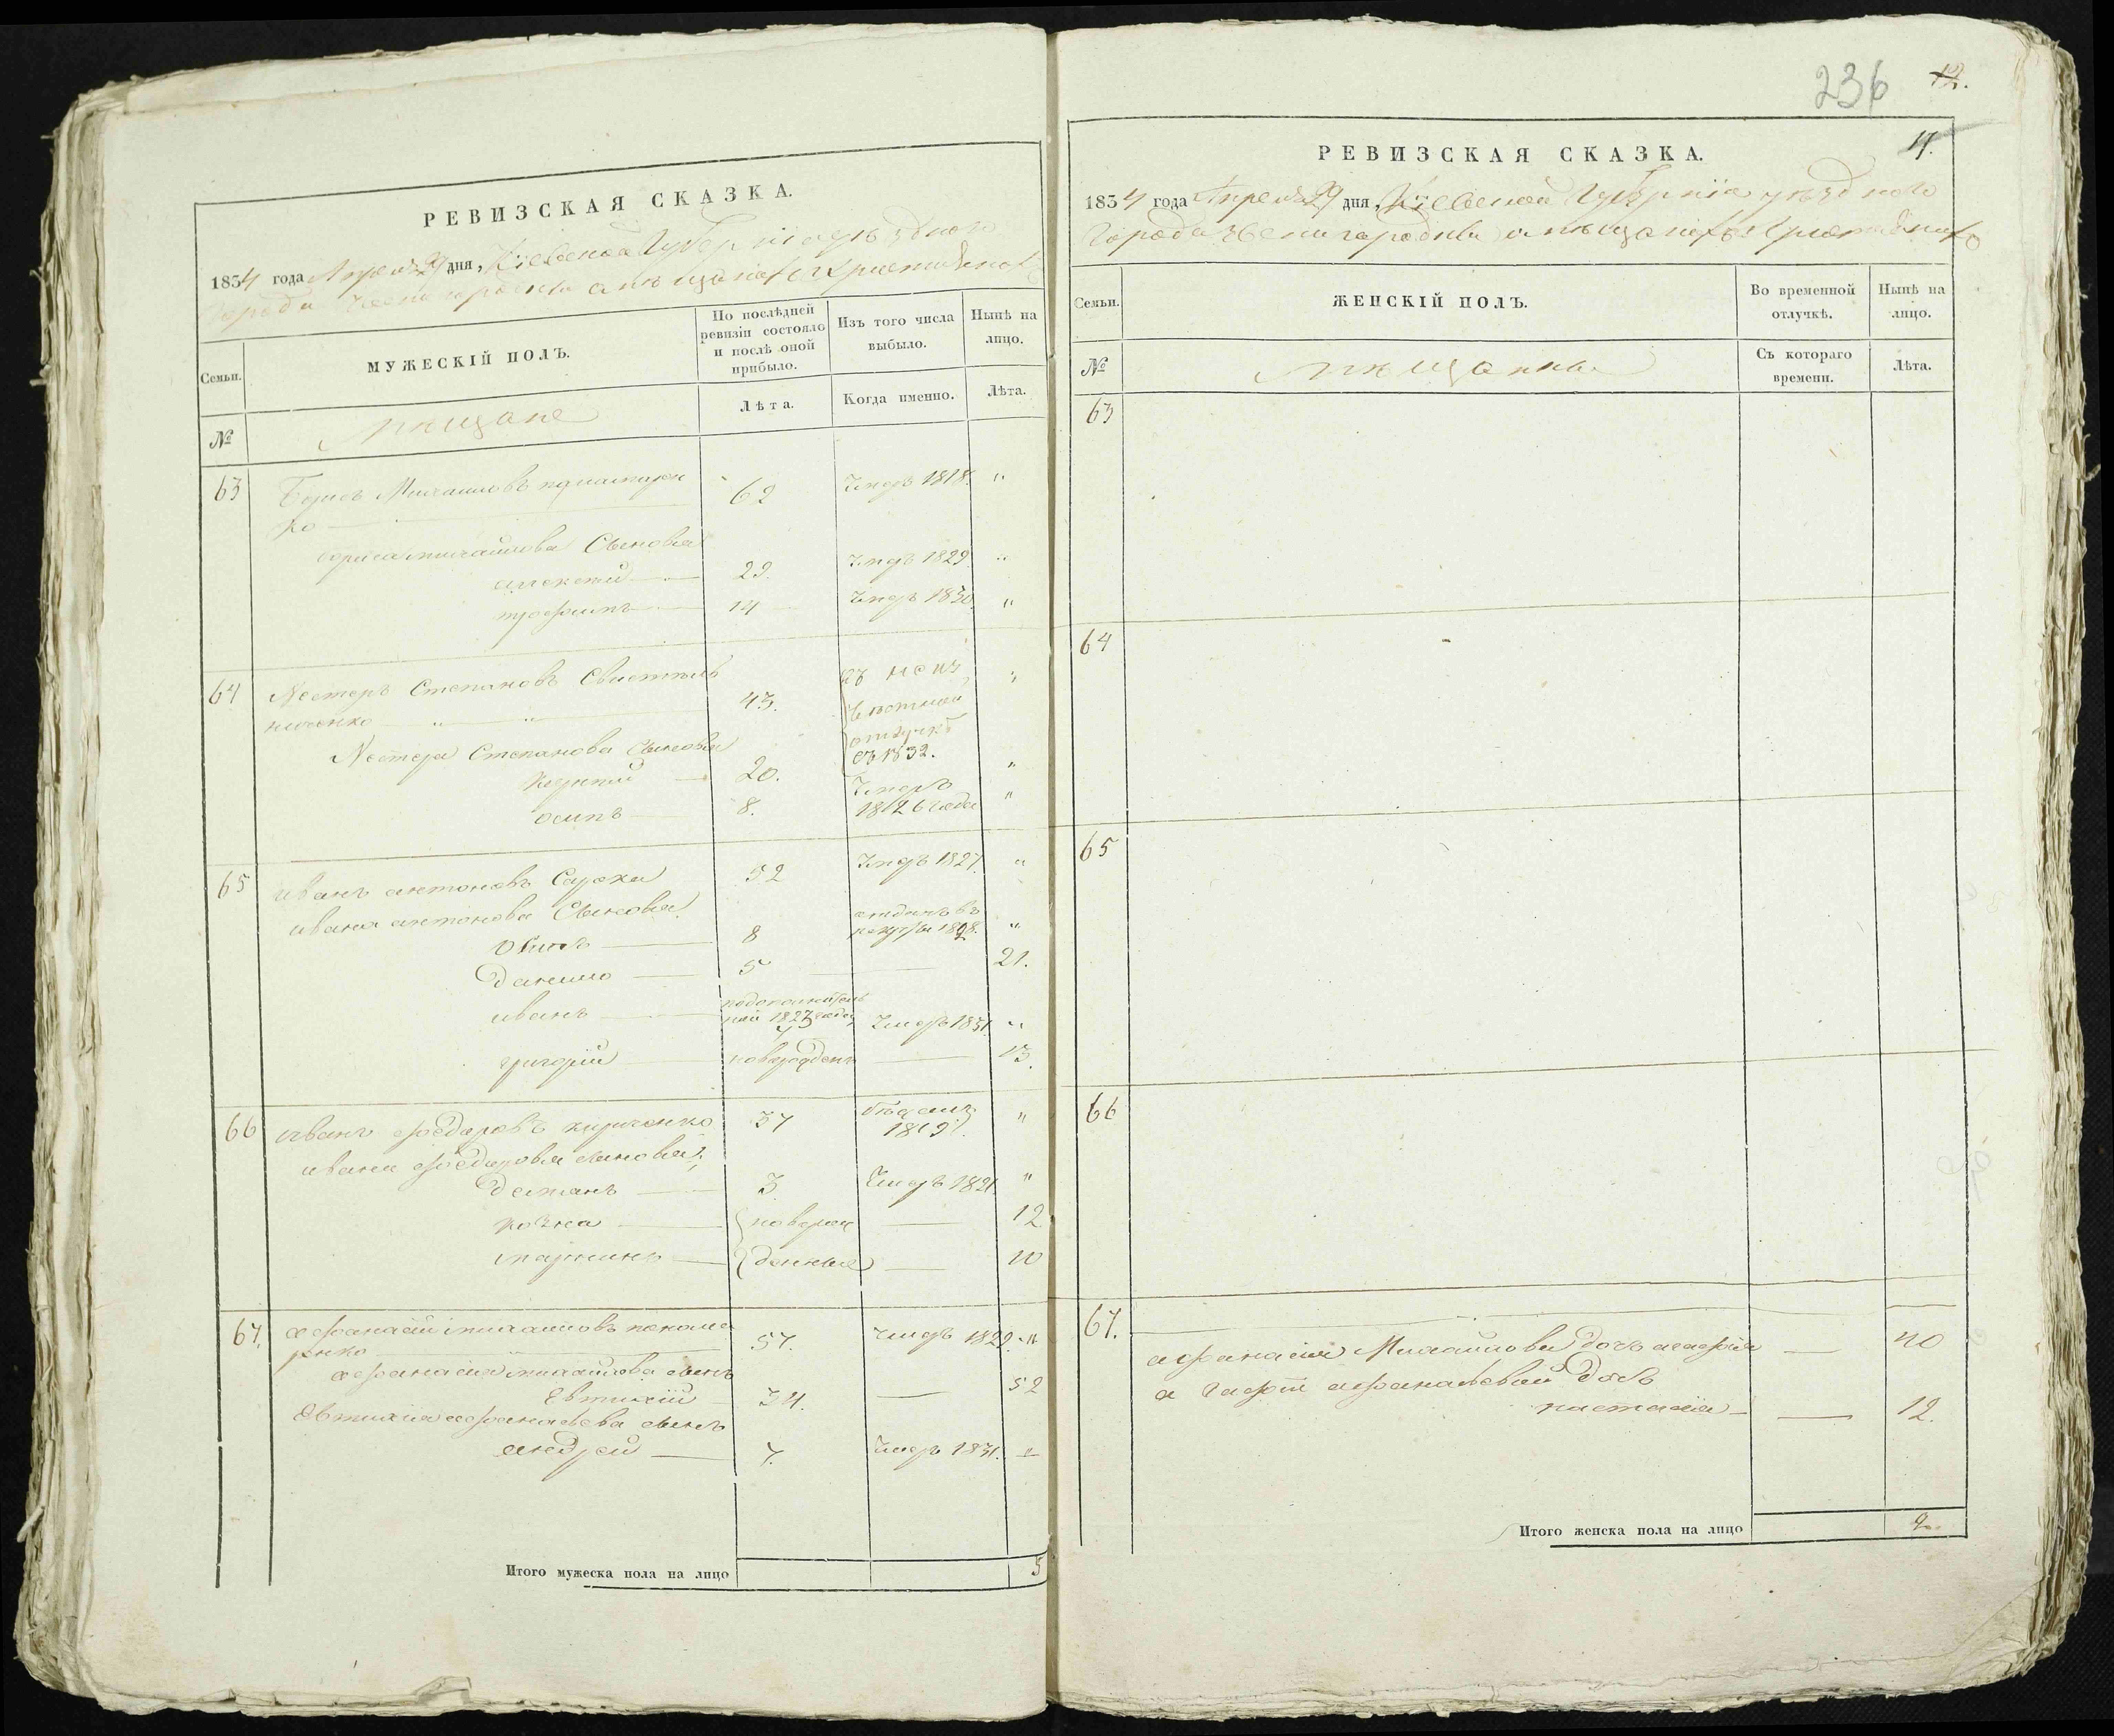 РЕВИЗСКАЯ СКАЗКА.
1834 года Апреля 29 дня, Кіевской Губерніи уѣзднаго
города Звенигородки о мѣщанахъ Христіянахъ
Семьи.
МУЖЕСКІЙ ПОЛЪ.
По послѣдней ревизіи состояло и послѣ оной прибыло.
Изъ того числа выбыло.
Нынѣ на лицо.
№
мѣщане
Лѣта.
Когда именно.
Лѣта.
63 Борисъ Михаиловъ 62 Умеръ 1818. "
ко
бориса михайлова Сыновья
алексей 29. Умеръ 1829 "
трофимъ 14 Умеръ 1830 "
64 Нестеръ Степановъ 43. "
ниченко " "
отлучкѣ
Нестера Степанова Сыновья съ 1832.
20. Умеръ "
осипъ 8. 1826 года "
65 иванъ антоновъ 52 Умеръ 1827. "
ивана антонова Сыновья отданъ въ
8 рекруты 1828. "
Данило 5 21.
иванъ 1823 года 7 Умеръ 1831. "
григорій новорожденъ 13.
66 иванъ федоровъ кириченко 37 бѣжалъ 1819. "
ивана федорова сыновья;
демянъ 3 Умеръ 1821. "
козма новорож 12
мартинъ денные 10
67. афанасій михаиловъ 57. умеръ 1829. "
ренко
афанасія михайлова сынъ
Евтихій 34. 52
Евтихія афанасьева сынъ
андрей 7. Умеръ 1831. "
Итого мужеска пола на лицо 5
236 12.
17.
РЕВИЗСКАЯ СКАЗКА.
1834 года Апреля 29 дня, Кіевской Губерніи уѣзднаго
Города Звенигородки о мѣщанахъ Христіянахъ
Семьи.
ЖЕНСКІЙ ПОЛЪ.
Во временной отлучкѣ.
Нынѣ на лицо.
№
мѣщанки
Съ котораго времени.
Лѣта.
63
64
65
66
67.
афанасія Михайлова дочь агафія 40
агафіи афанасьевой дочь
настасія 12.
Итого женска пола на лицо 2.